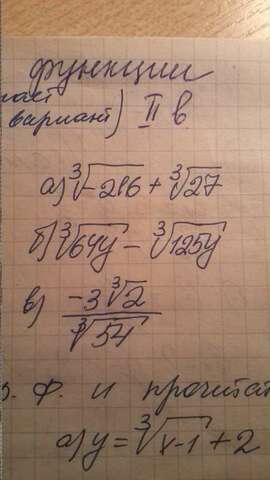 функции
вариант) II в.
а) ∛-216 + ∛27
б) ∛64y - ∛125y
в) -3∛2 / ∛54
Ф. и прочитат
а) y = ∛x-1 + 2